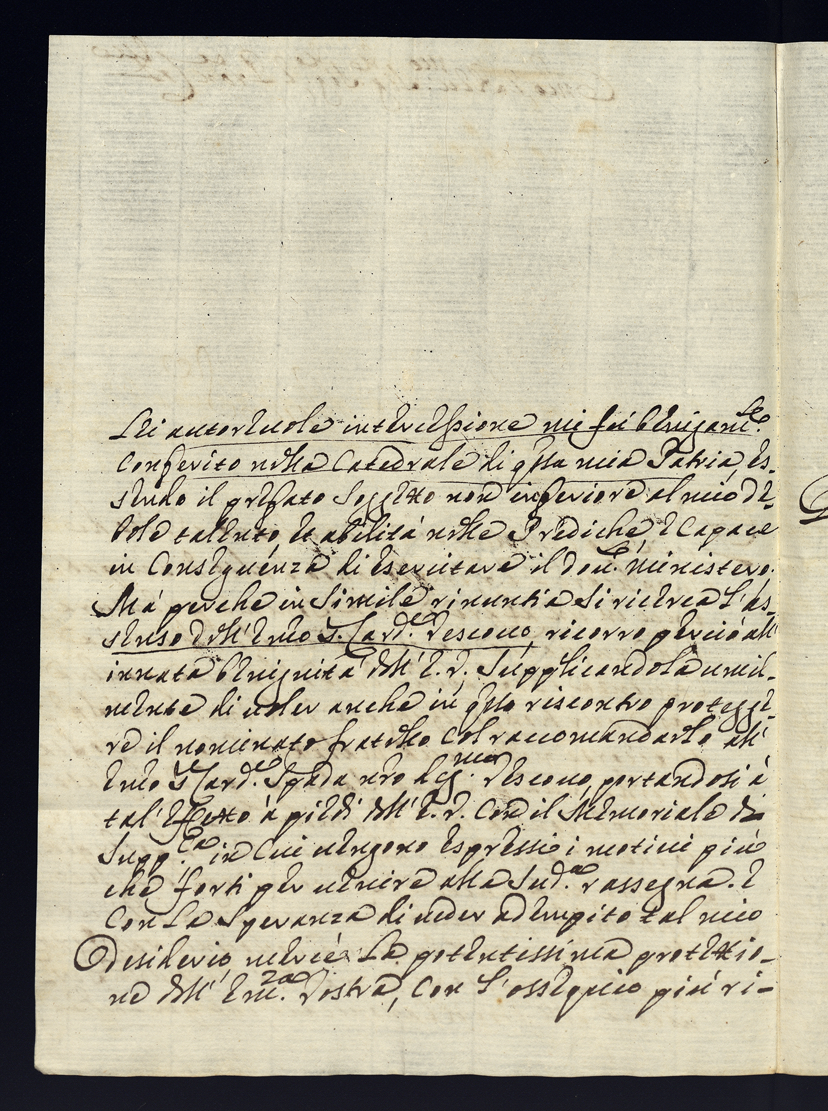 Lei autoreuole intercessione mi fù benignam.te
conferito nella Catedrale di q̃sta mia Patria, es-
sendo il prefato Soggetto non inferiore al mio de-
bole talento, et abilità nelle Prediche, e capace
in Consequenza di esercitare il dou.to ministero.
Mà perche in Simile rinuntia Si ricerca l'as-
senso dell'Em̃o S. Card.le Vescouo, ricorro perciò all'
innata benignità dell'E. V. Supplicandola umil-
mente di uoler anche in q̃sto riscontro protegge-
re il nominato fratello col raccomandarlo all'
Em̃o S. Card.le Spada nr̃o deg.mo Vescouo, portandosi à
tal' effetto à piedi dell'E. V. con il Memoriale di
Supp.ca in cui uengono espressi i motiui più
che forti per uenire alla Sud.a rassegna. E
con la Speranza di ueder adempito tal mio
desiderio mercè La potentissima protettio-
ne dell'Em.za Vostra, con l'ossequio più ri-